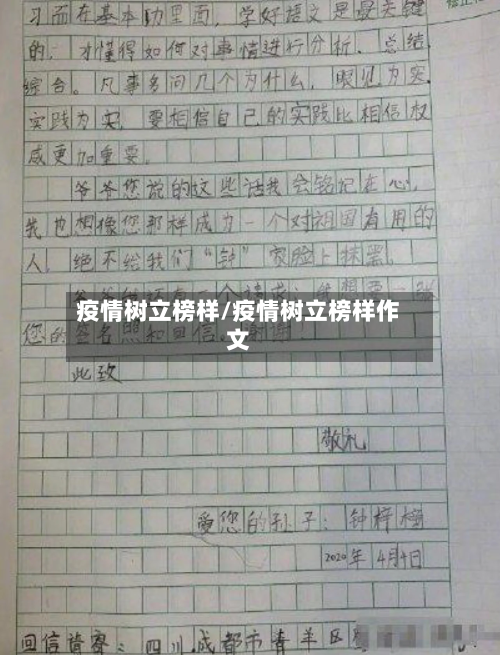 习而在基本功里面，学好语文是最关键
的，才懂得如何对事情进行分析、总结、
综合。凡事多问几个为什么，眼见为实，
实践为实，要相信自己的实践比相信权
威更加重要。
爷爷您说的这些话我会铭记在心，
我也想像您那样成为一个对祖国有用的
人，绝不给我们“钟”家脸上抹黑。
疫情树立榜样/疫情树立榜样作
文
您的签名照和回信。谢谢！
此致
敬礼
爱您的孙子：钟梓
2020年4月4日
回信：四川成都市青羊区